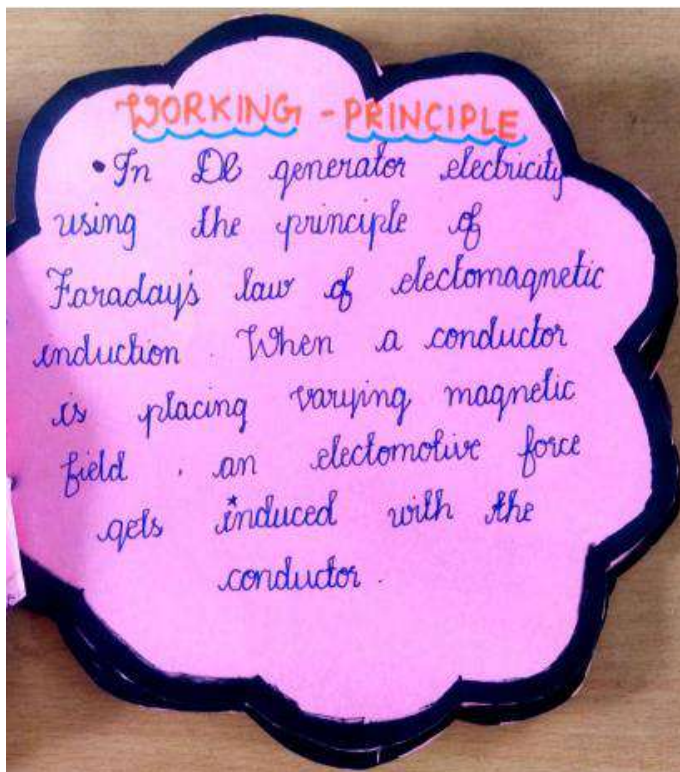 WORKING - PRINCIPLE
• In DC generator electricity
using the principle of
Faraday's law of electomagnetic
induction. When a conductor
is placing varying magnetic
field, an electomotive force
gets induced with the
conductor.